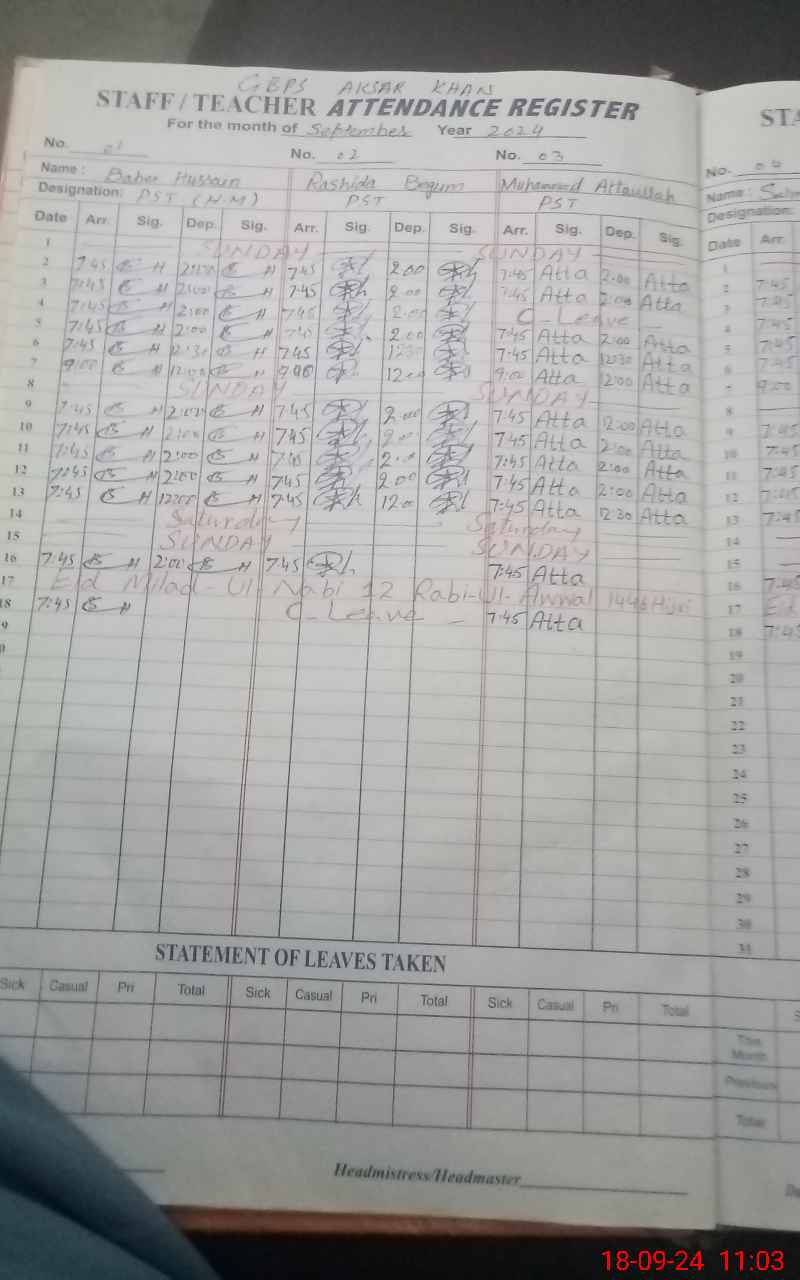 GBPS AKSAR KHAN
STAFF / TEACHER ATTENDANCE REGISTER
For the month of September Year 2024
No. 01 No. 02 No. 03
Name : Baber Hussain Rashida Begum Muhammad Attaullah
Designation: PST (N.M) PST PST
Date Arr. Sig. Dep. Sig. Arr. Sig. Dep. Sig. Arr. Sig. Dep. Sig.
1 SUNDAY SUNDAY
2 7:45 H 2:00 H 7:45 2:00 7:45 Atta 2:00 Atta
3 7:45 H 2:00 H 7:45 2:00 7:45 Atta 2:00 Atta
4 7:45 H 2:00 H 7:45 2:00 C-Leave
5 7:45 H 2:00 H 2:00 7:45 Atta 2:00 Atta
6 7:45 H 12:30 H 7:45 1230 7:45 Atta 1230 Atta
7 9:00 H 12:00 H 9:00 1200 9:00 Atta 12:00 Atta
8 SUNDAY SUNDAY
9 7:45 H 2:00 H 7:45 2:00 7:45 Atta 12:00 Atta
10 7:45 H 2:00 H 7:45 7:45 Atta 2:00 Atta
11 7:45 H 2:00 H 7:45 7:45 Atta 2:00 Atta
12 7:45 H 2:00 H 7:45 200 7:45 Atta 2:00 Atta
13 7:45 H 12:00 H 7:45 1200 7:45 Atta 12:30 Atta
14 Saturday Saturday
15 SUNDAY SUNDAY
16 7:45 H 2:00 H 7:45 7:45 Atta
17 Eid Milad-Ul Nabi 12 Rabi-Ul-Awwal 1446 Hijri
18 7:45 H C-Leave 7:45 Atta
9
0
STATEMENT OF LEAVES TAKEN
Sick Casual Pri Total Sick Casual Pri Total Sick Casual Pri Total
Headmistress/Headmaster
STA
No. 04
Name :
Designation:
Date Arr.
1
2 7:45
3 7:45
4 7:45
5 7:45
6 7:45
7 9:00
8
9 7:45
10 7:45
11 7:45
12 7:45
13 7:45
14
15
16 7:45
17 Eid
18 7:45
19
20
21
22
23
24
25
26
27
28
29
30
31
This Month
Previous
Total
18-09-24 11:03